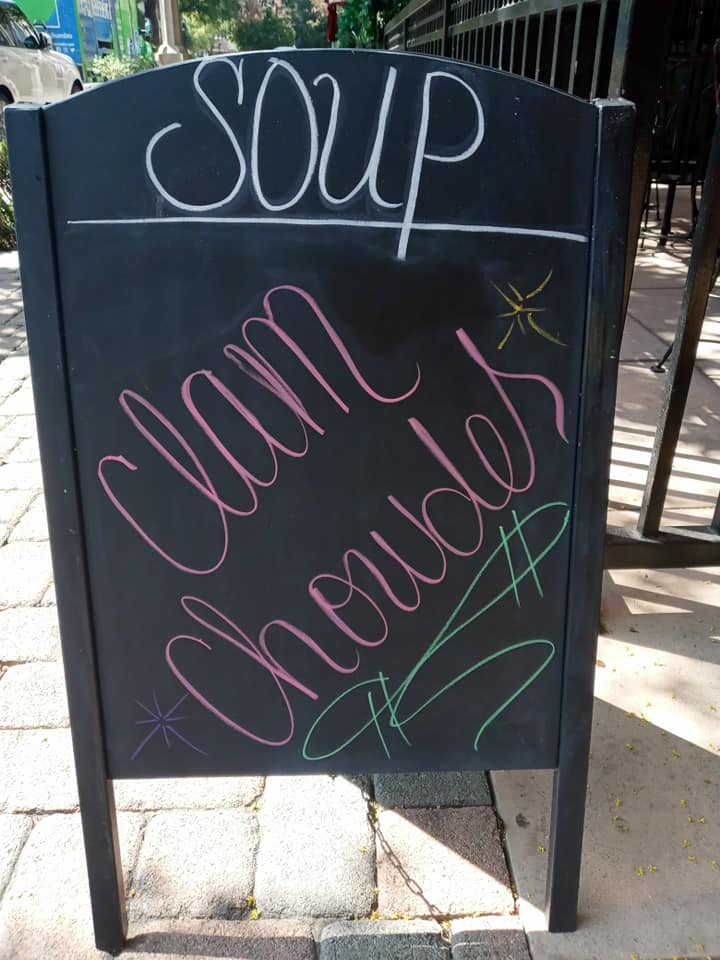 SOUP
Clam
Chowder